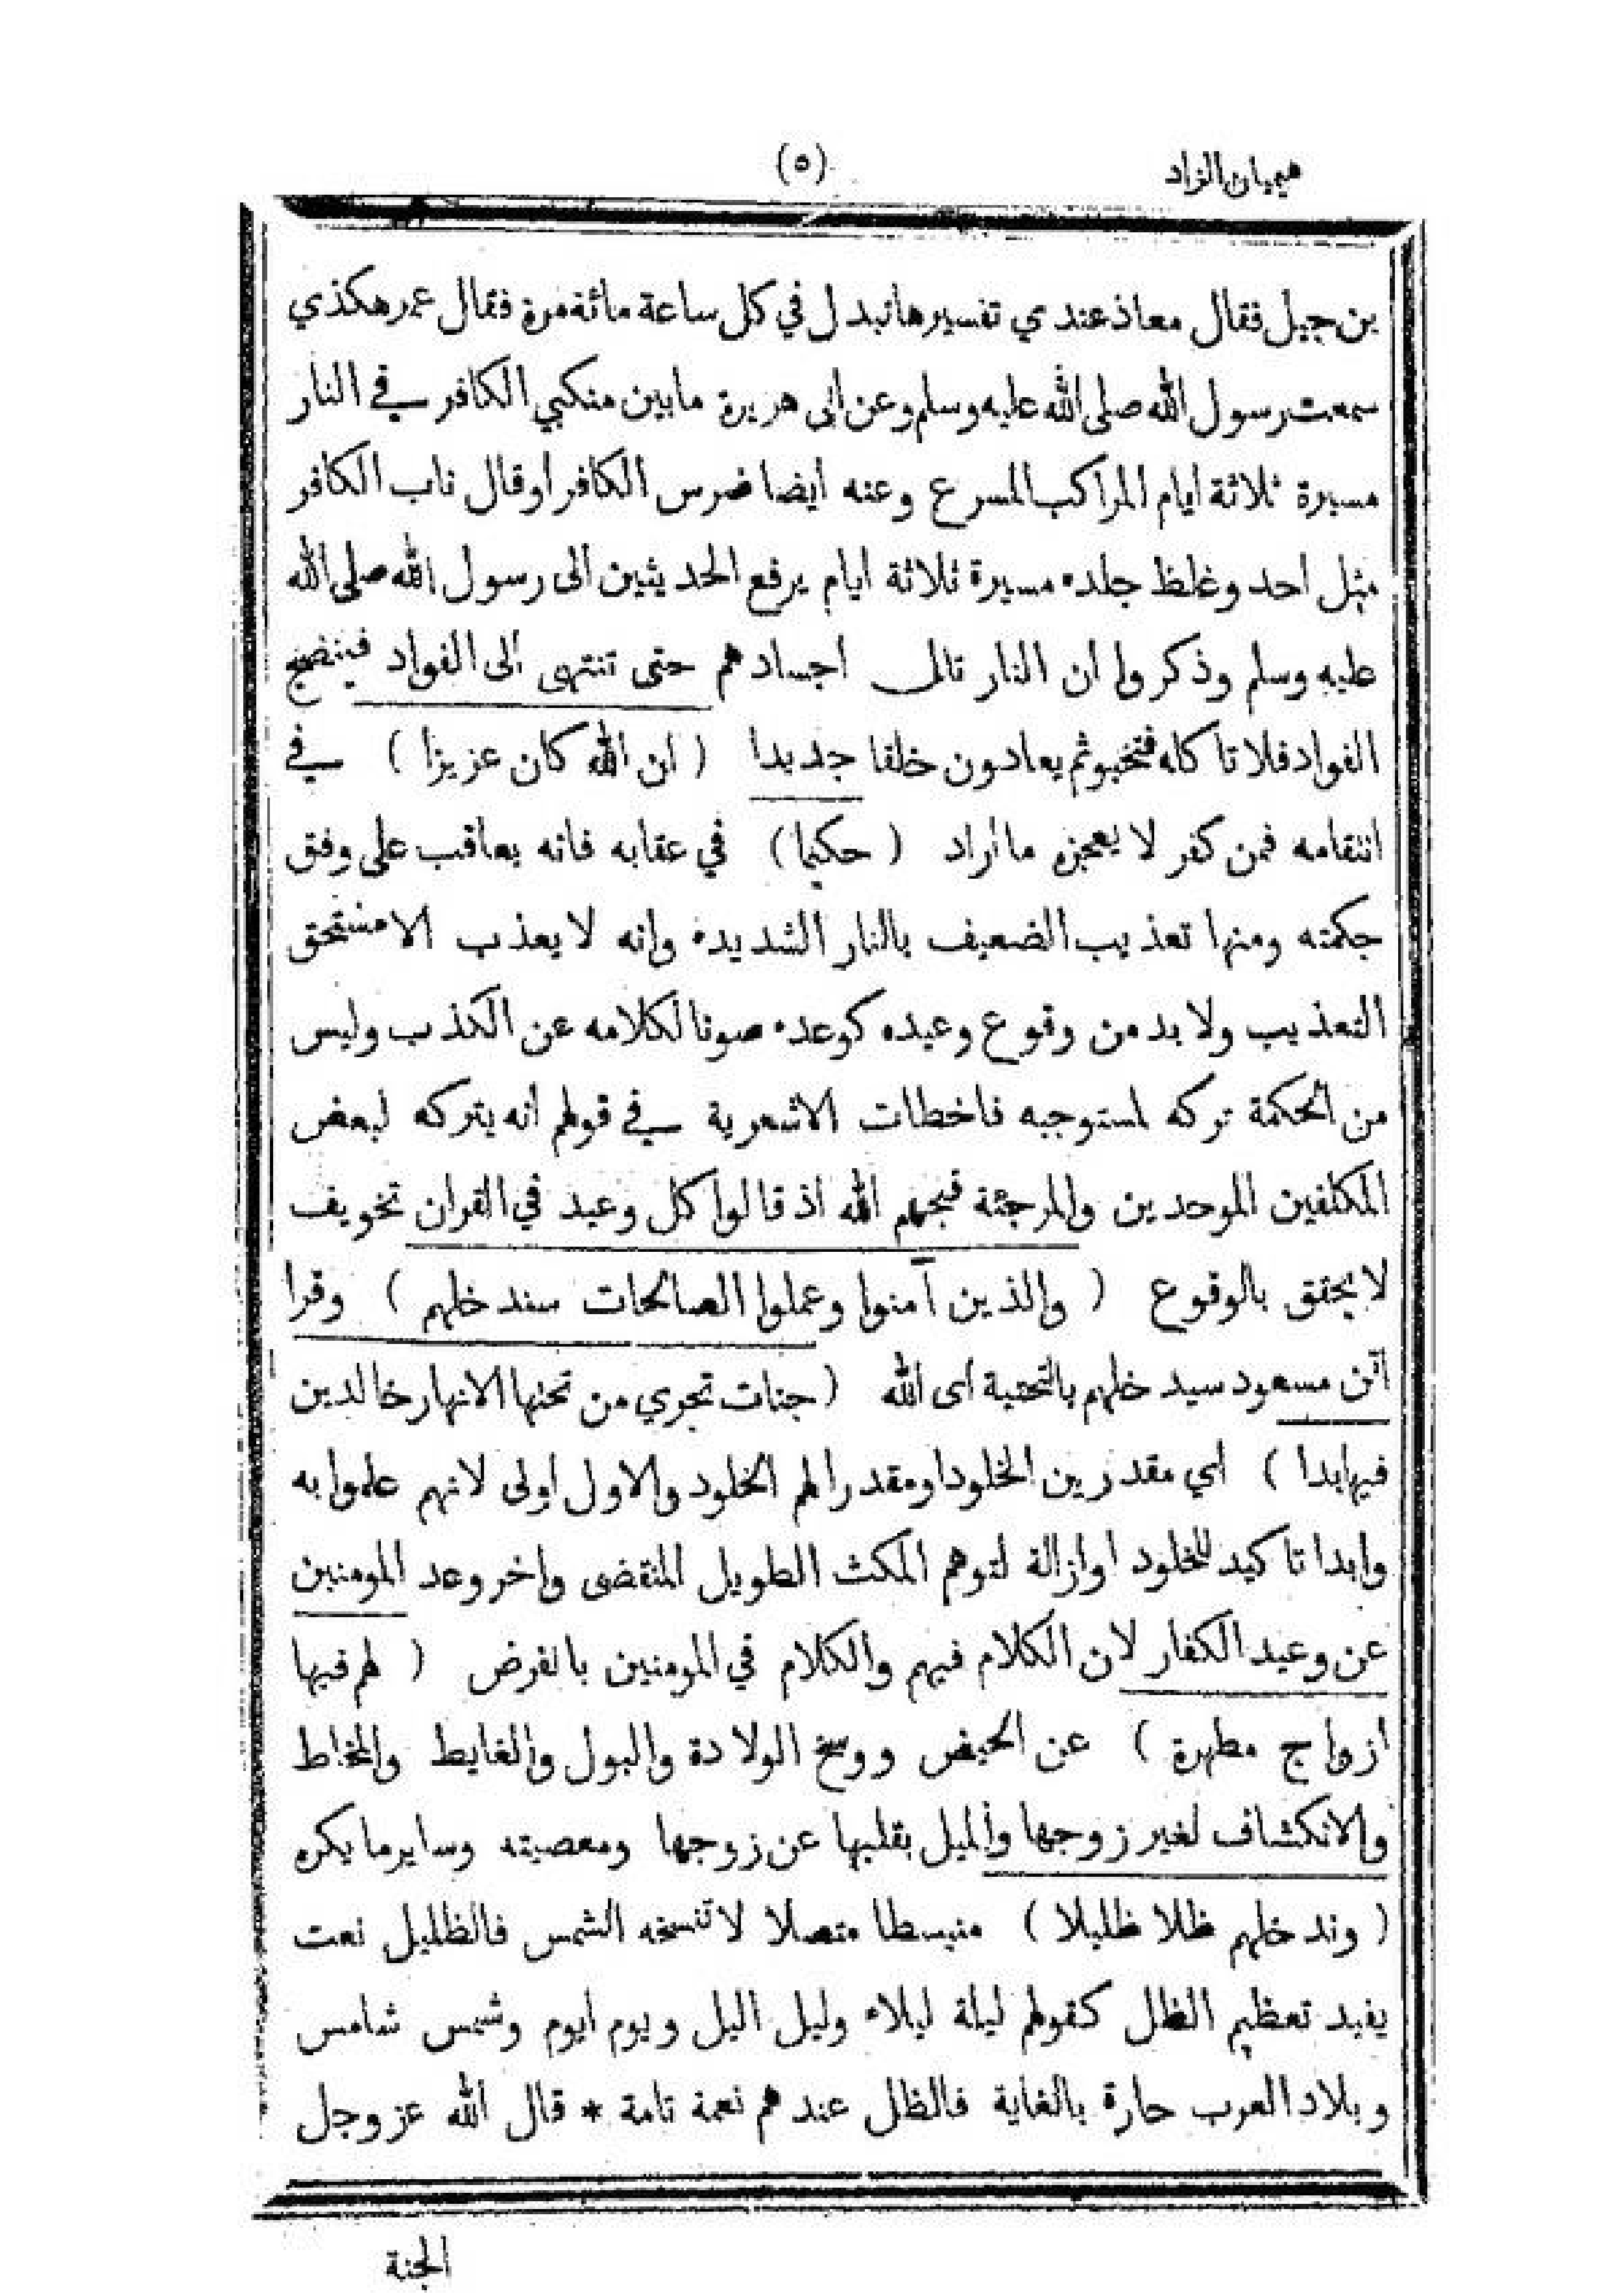 هيميان الزاد
(٥)
بن جبل فقال معاذ عندي تفسيرها تبدل في كل ساعة مائة مرة فقال عمر هكذي
سمعت رسول الله صلى الله عليه وسلم وعن ابى هريرة ما بين منكبي الكافر في النار
مسيرة ثلاثة ايام للراكب المسرع وعنه أيضا ضرس الكافر أو قال ناب الكافر
مثل احد وغلظ جلده مسيرة ثلاثة ايام يرفع الحديثين الى رسول الله صلى الله
عليه وسلم وذكروا ان النار تاكل اجسادهم حتى تنتهى الى الفواد فينضج
الفواد فلا تاكله فتخبو ثم يعادون خلقا جديدا ( ان الله كان عزيزا ) في
انتقامه فمن كفر لا يعجزه ما أراد ( حكيما ) في عقابه فانه يعاقب على وفق
حكمته ومنها تعذيب الضعيف بالنار الشديدة وانه لا يعذب الا مستحق
التعذيب ولا بد من وقوع وعيده كوعده صونا لكلامه عن الكذب وليس
من الحكمة تركه لمستوجبه فاخطات الاشعرية في قولهم أنه يتركه لبعض
المكلفين الموحدين والمرجئة قبحهم الله اذ قالوا كل وعيد في القران تخويف
لا يحقق بالوقوع ( والذين آمنوا وعملوا الصالحات سندخلهم ) وقرا
أبن مسعود سيدخلهم بالتحتية أى الله ( جنات تجري من تحتها الانهار خالدين
فيها ابدا ) اي مقدرين الخلود او مقدرا لهم الخلود والاول اولى لانهم علموا به
وابدا تاكيد للخلود او ازالة لتوهم المكث الطويل المنقضى واخر وعد المومنين
عن وعيد الكفار لان الكلام فيهم والكلام في المومنين بالفرض ( لهم فيها
أزواج مطهرة ) عن الحيض ووسخ الولادة والبول والغايط والمخاط
والانكشاف لغير زوجها والميل بقلبها عن زوجها ومعصيته وساير ما يكره
( وندخلهم ظلا ظليلا ) منبسطا متصلا لا تنسخه الشمس فالظليل نعت
يفيد تعظيم الظل كقولهم ليلة ليلاء وليل اليل ويوم ايوم وشمس شامس
وبلاد العرب حارة بالغاية فالظل عندهم نعمة تامة * قال الله عز وجل
الجنة